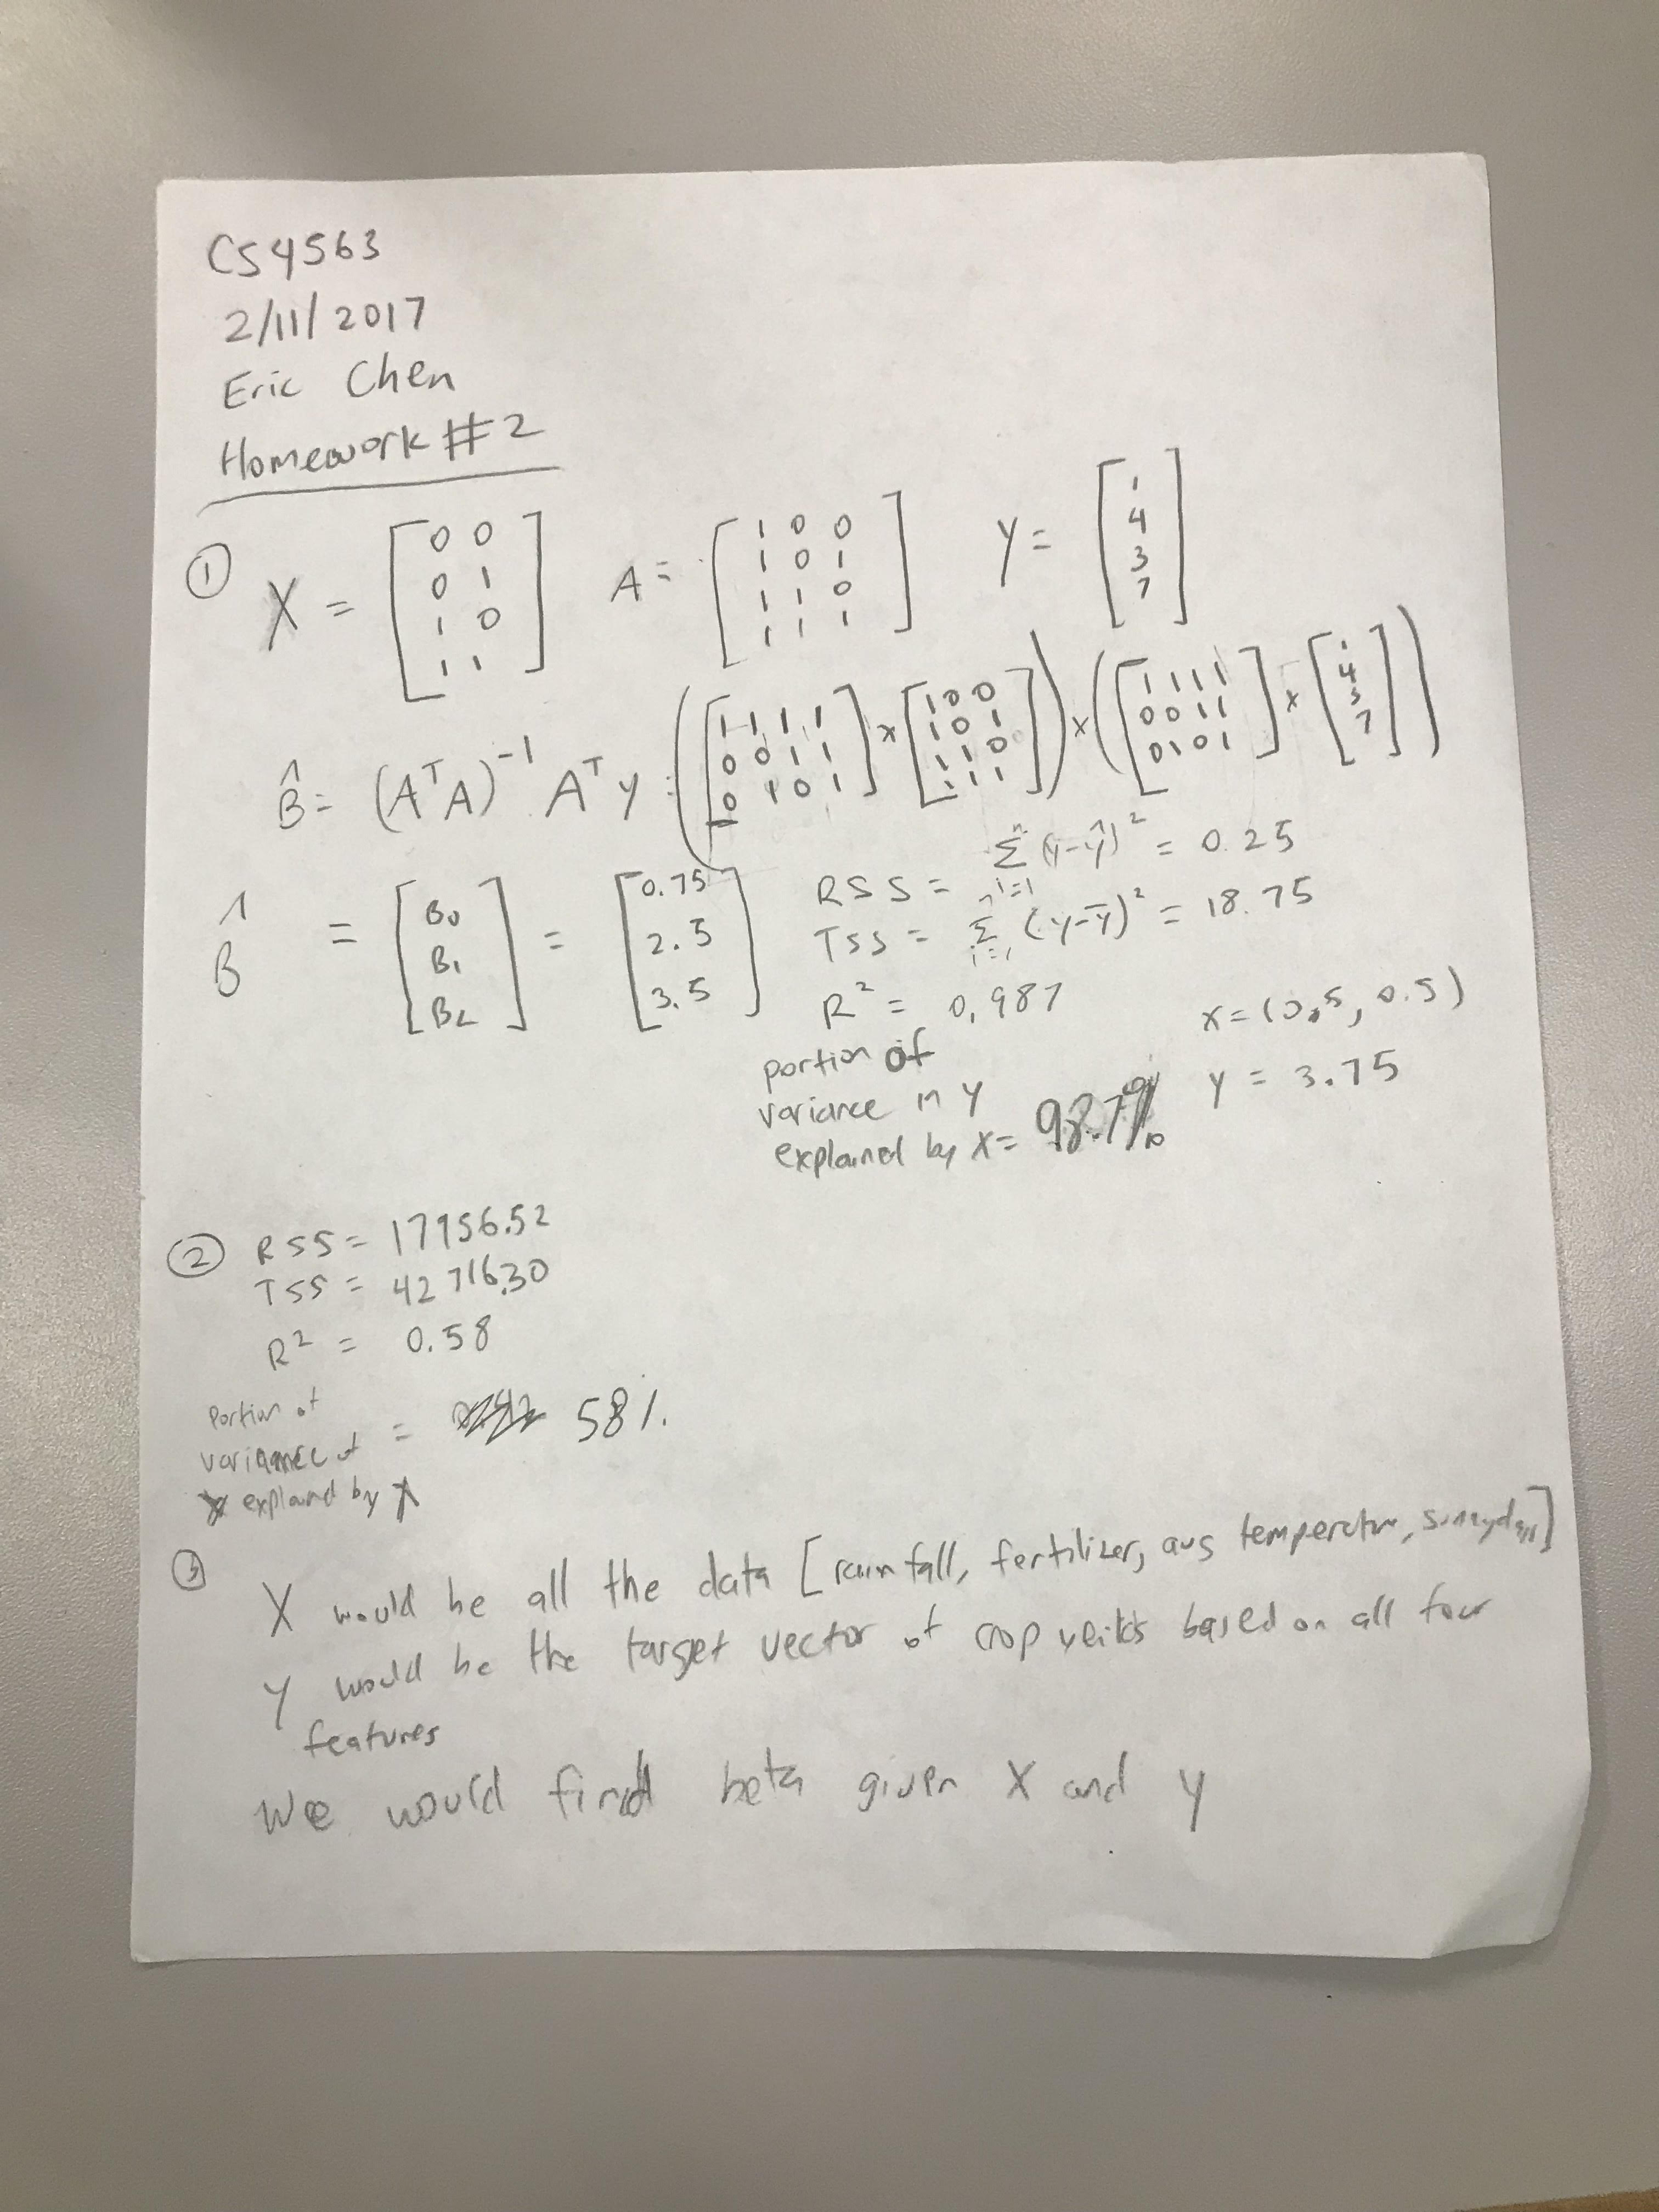 CS4563
2/11/2017
Eric Chen
Homework #2
① X = [0 0; 0 1; 1 0; 1 1] A = [1 0 0; 1 0 1; 1 1 0; 1 1 1] Y = [1; 4; 3; 7]
B̂ = (AᵀA)⁻¹ Aᵀ y = ([1 1 1 1; 0 0 1 1; 0 1 0 1] × [1 0 0; 1 0 1; 1 1 0; 1 1 1]) × ([1 1 1 1; 0 0 1 1; 0 1 0 1] × [1; 4; 3; 7])
B̂ = [B₀; B₁; B₂] = [0.75; 2.5; 3.5]
RSS = Σⁿᵢ₌₁ (y-ŷ)² = 0.25
TSS = Σⁿᵢ₌₁ (y-ȳ)² = 18.75
R² = 0.987
portion of
variance in Y
explained by X = 98.7%
x = (0.5, 0.5)
y = 3.75
② RSS = 17956.52
TSS = 42716.30
R² = 0.58
Portion of
variance of = 58%
explaind by X
③ X would be all the data [rainfall, fertilizer, avg temperature, sunnydays]
Y would be the target vector of crop based on all four
features
We would find beta given X and y